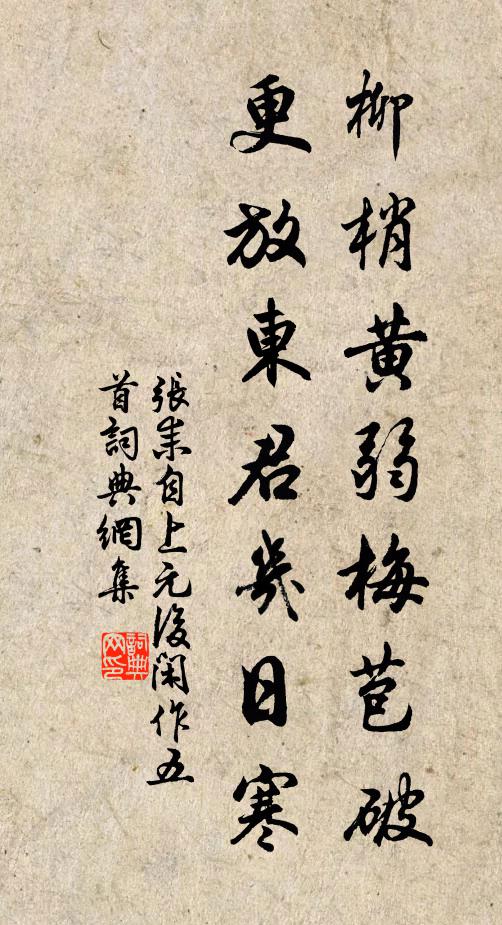 柳梢黄弱梅苞破
更放東君幾日寒
張耒自上元後閑作五
首詞典網集
詞典網印